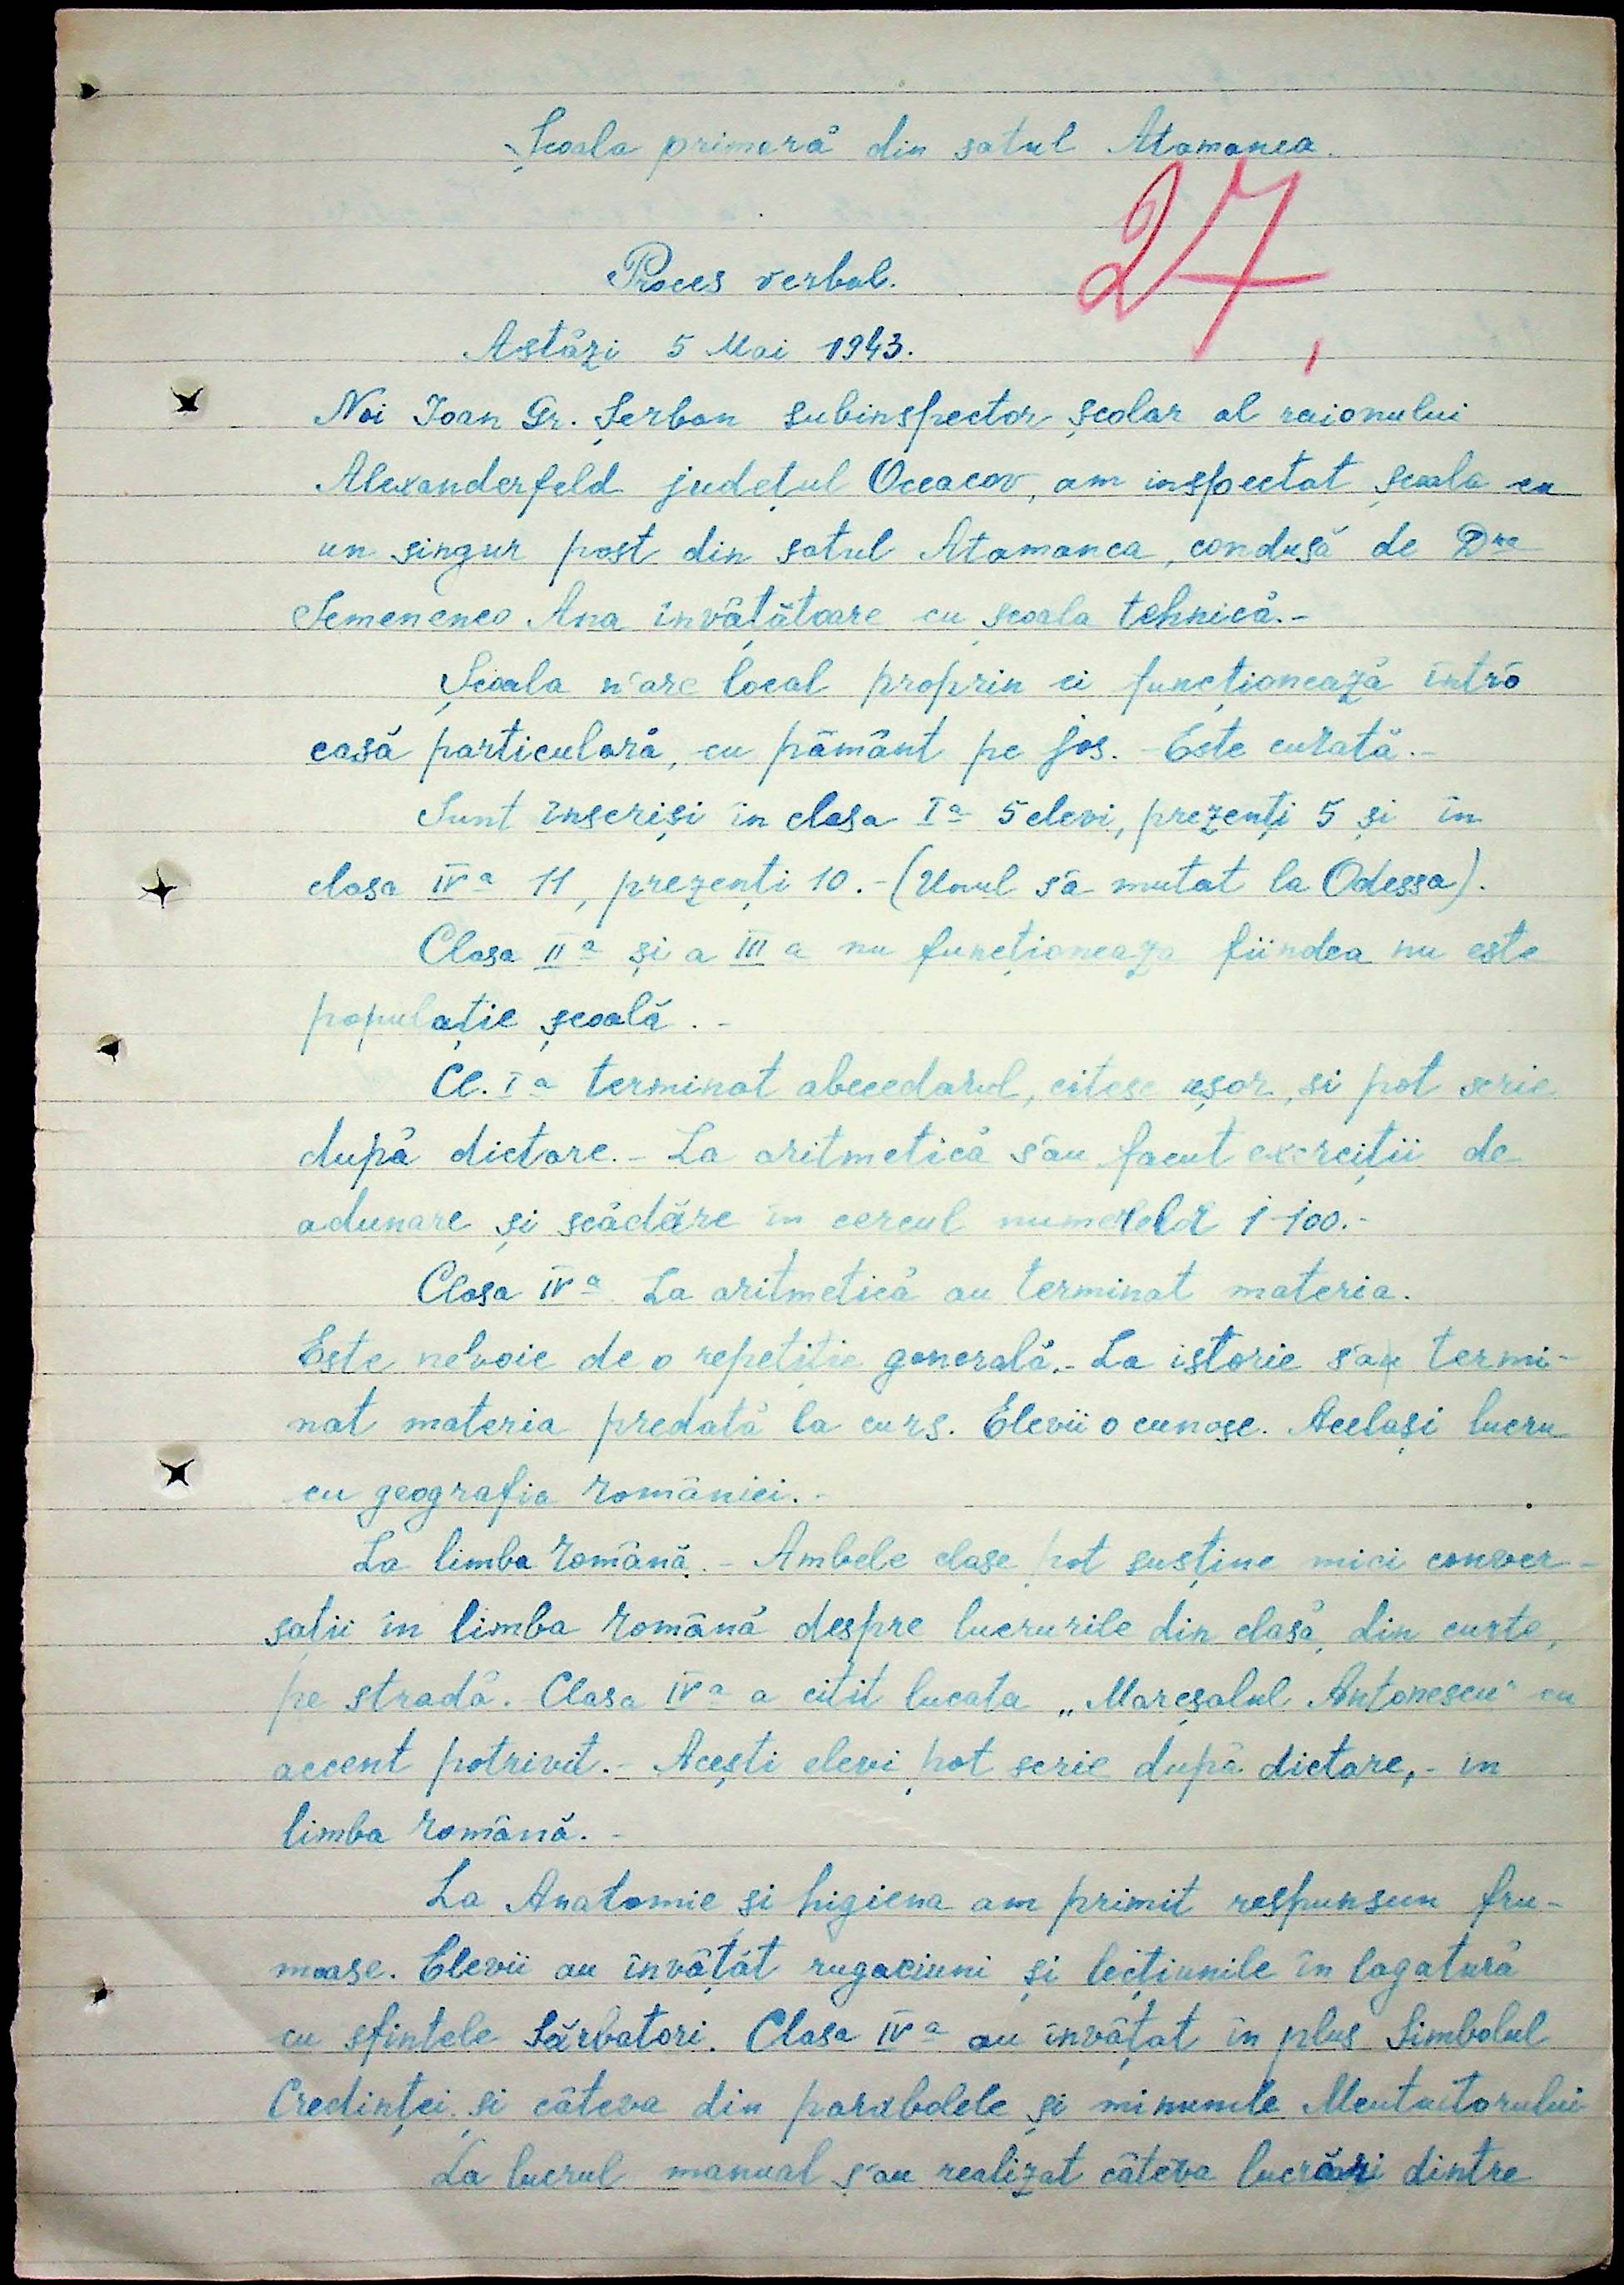 Școala primară din satul Atamanca.
27,
Proces verbal.
Astăzi 5 Mai 1943.
Noi Ioan Gr. Șerban subinspector școlar al raionului
Alexanderfeld județul Oceacov, am inspectat școala cu
un singur post din satul Atamanca, condusă de Dna
Semenenco Ana învâțătoare cu școala tehnică.-
Școala n'are local proprin ci funcționează într'o
casă particulară, cu pământ pe jos. - Este curată.-
Sunt inscriși in clasa Iª 5 elevi, prezenți 5 și in
clasa IVª 11, prezenți 10.- (Unul s'a mutat la Odessa).
Clasa IIª și a IIIª nu funcționeaza fiindca nu este
populație școală.-
Cl. Iª terminat abecedarul, citesc ușor, si pot scrie
după dictare.- La aritmetică s'au facut exerciții de
adunare și scădăre in cercul numerelor 1-100.-
Clasa IVª La aritmetică au terminat materia.
Este nevoie de o repetiție generală.- La istorie s'au termi-
nat materia predată la curs. Elevii o cunosc. Același lucru
cu geografia României.-
La limba Română.- Ambele clase pot susține mici conver-
sații în limba Română despre lucrurile din clasă, din curte,
pe stradă. Clasa IVª a citit lucata „Mareșalul Antonescu" cu
accent potrivit.- Acești elevi pot scrie după dictare,- in
limba Română.-
La Anatomie și higiena am primit respunsun fru-
moase. Elevii au învățăt rugaciuni și lecțiunile în lagatură
cu sfintele Sărbatori. Clasa IVª au învâțat în plus Simbolul
Credinței și câteva din parabolele și minunile Mentuitorului
La lucrul manual s'au realizat câteva lucrări dintre